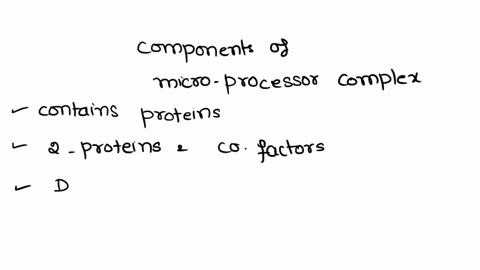 components of
micro-processor complex
✓ contains proteins
✓ 2-proteins & co.factors
✓ D